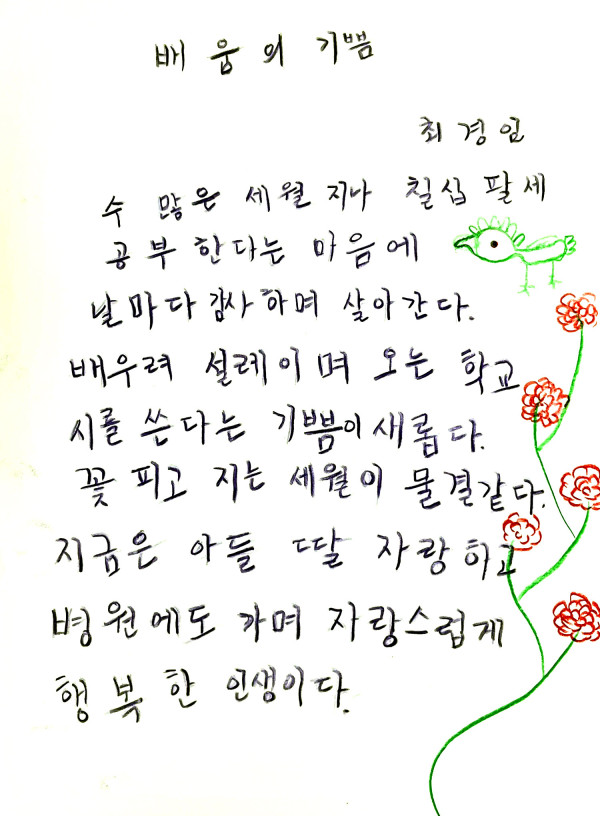 배움의 기쁨
최경임
수 많은 세월 지나 칠십 팔세
공부한다는 마음에
날마다 감사하며 살아간다.
배우려 설레이며 오는 학교
시를 쓴다는 기쁨이 새롭다.
꽃 피고 지는 세월이 물결같다.
지금은 아들 딸 자랑하고
병원에도 가며 자랑스럽게
행복한 인생이다.